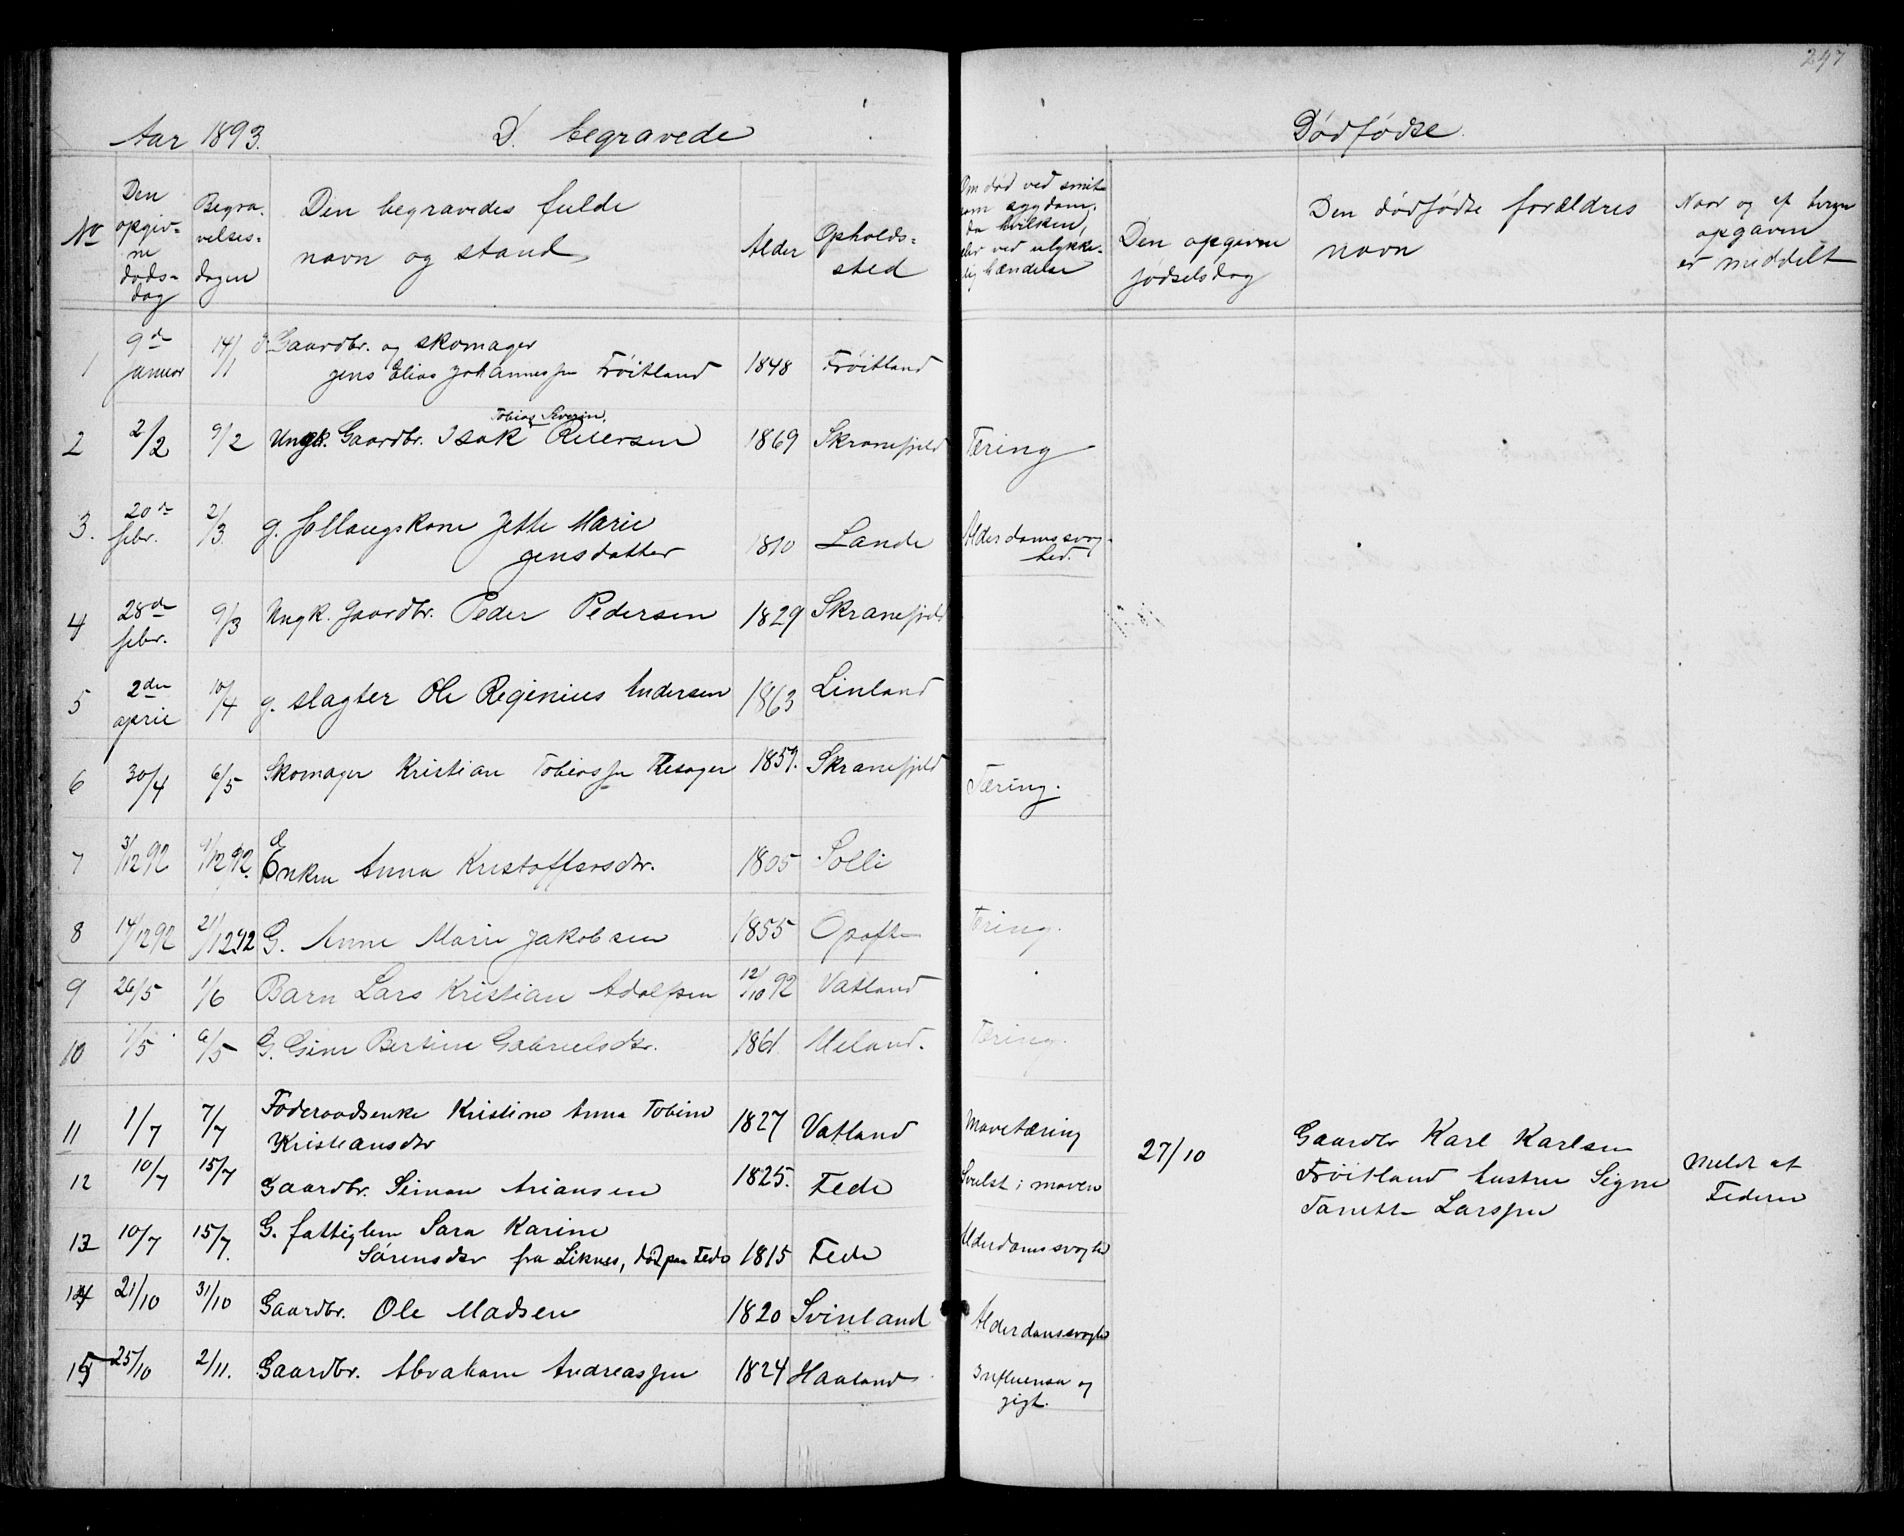 297
Aar 1893.
D. begravede
Dødfødte.
No
Den opgiv-
ne
døds-
dag
Begra-
velses-
dagen
Den begravedes fulde
navn og stand
Alder
Opholds-
sted
Om død ved smit-
som sygdom,
da hvilken,
eller ved ulykke-
lig hændelse
Den opgivne
fødselsdag
Den dødfødte forældres
navn
Naar og af hvem
opgaven
er meddelt
1 9de januar 14/1 Gaardbr. og skomager
Jens Elias Johannessen Frøitland 1848 Frøitland
2 2/2 9/2 Ungk. Gaardbr. Isak Tobias Severin Reiersen 1869 Skranefjeld Tæring
3. 20de febr. 2/3 g. Marie
Jensdatter 1810 Lande Alderdomssvag-
hed.
4 28de febr. 9/3 Ungk. Gaardbr. Peder Pedersen 1829 Skranefjeld
5 2den april 10/4 g. slagter Ole Reginius Andersen 1863 Linland
6 30/4 6/5 Skomager Kristian Tobiassen 1859. Skranefjeld Tæring.
7 3/12 92 9/12 92. Enken Anna Kristoffersdtr. 1805 Solli
8 14/12 92 21/12 92 G. Anne Marie Jakobsen 1855 Opofte Tæring.
9 26/5 1/6 Barn Lars Kristian Adolfsen 12/10 92 Vatland
10 1/5 6/5 G. Gine Bertine Gabrielsdtr. 1861 Meland. Tæring.
11 1/7 7/7 Føderaadsenke Kristine Anna Tobine
Kristiansdtr 1827 Vatland Mavetæring
27/10 Gaardbr Karl Karlsen
Frøitland hustru Signe
Tanette Larssen
Meldt af
Federen
12 10/7 15/7 Gaardbr. Simon Ariansen 1825. Fede Svulst i maven
13 10/7 15/7. G. fattiglem Sara Karine
Sørensdtr fra Liknes, død paa Fede 1815 Fede Alderdomssvaghed
14 21/10 31/10 Gaardbr. Ole Madsen 1820 Svinland Alderdomssvaghed
15 25/10 2/11. Gaardbr. Abraham Andreassen 1824 Haaland Influensa og
gigt.